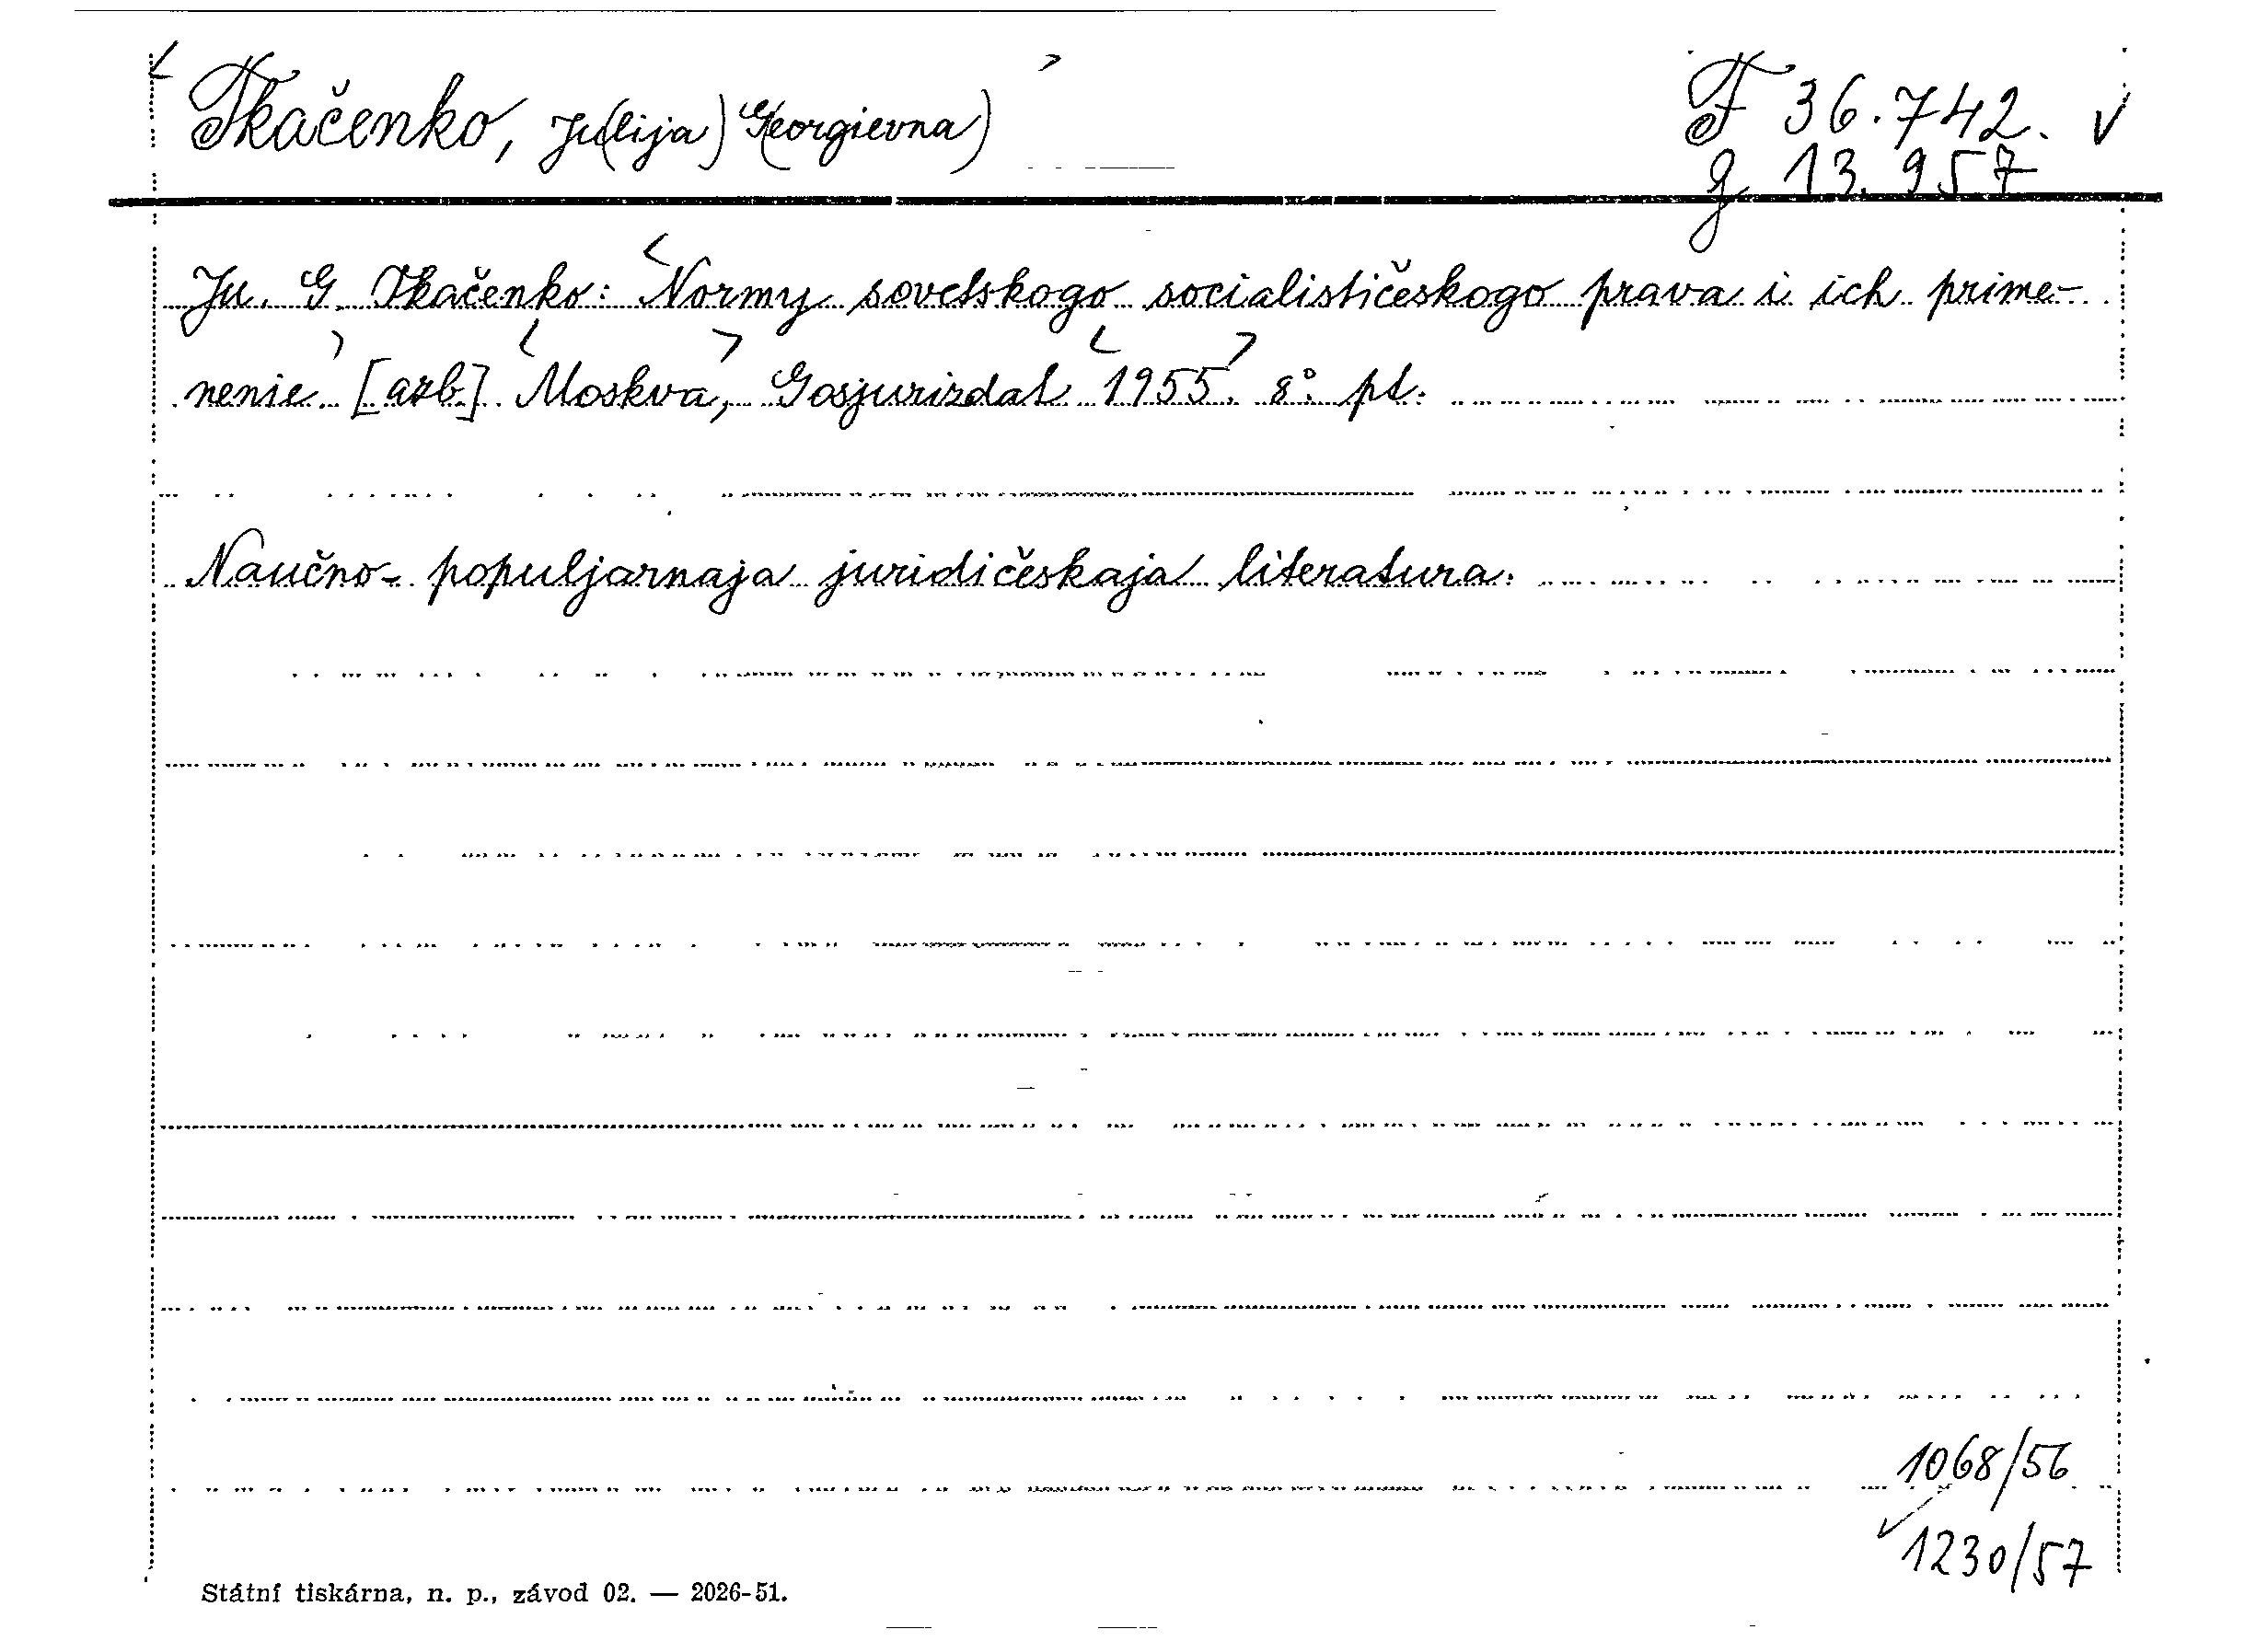 Tkačenko, Ju(lija) G(eorgievna)
F 36.742.
g 13.957
Ju. G. Tkačenko: Normy sovetskogo socialističeskogo prava i ich prime-
nenie. [azb]. Moskva, Gosjurizdat 1955. 8°. pt.
Naučno-populjarnaja juridičeskaja literatura.
1068/56
1230/57
Státní tiskárna, n. p., závod 02. — 2026-51.